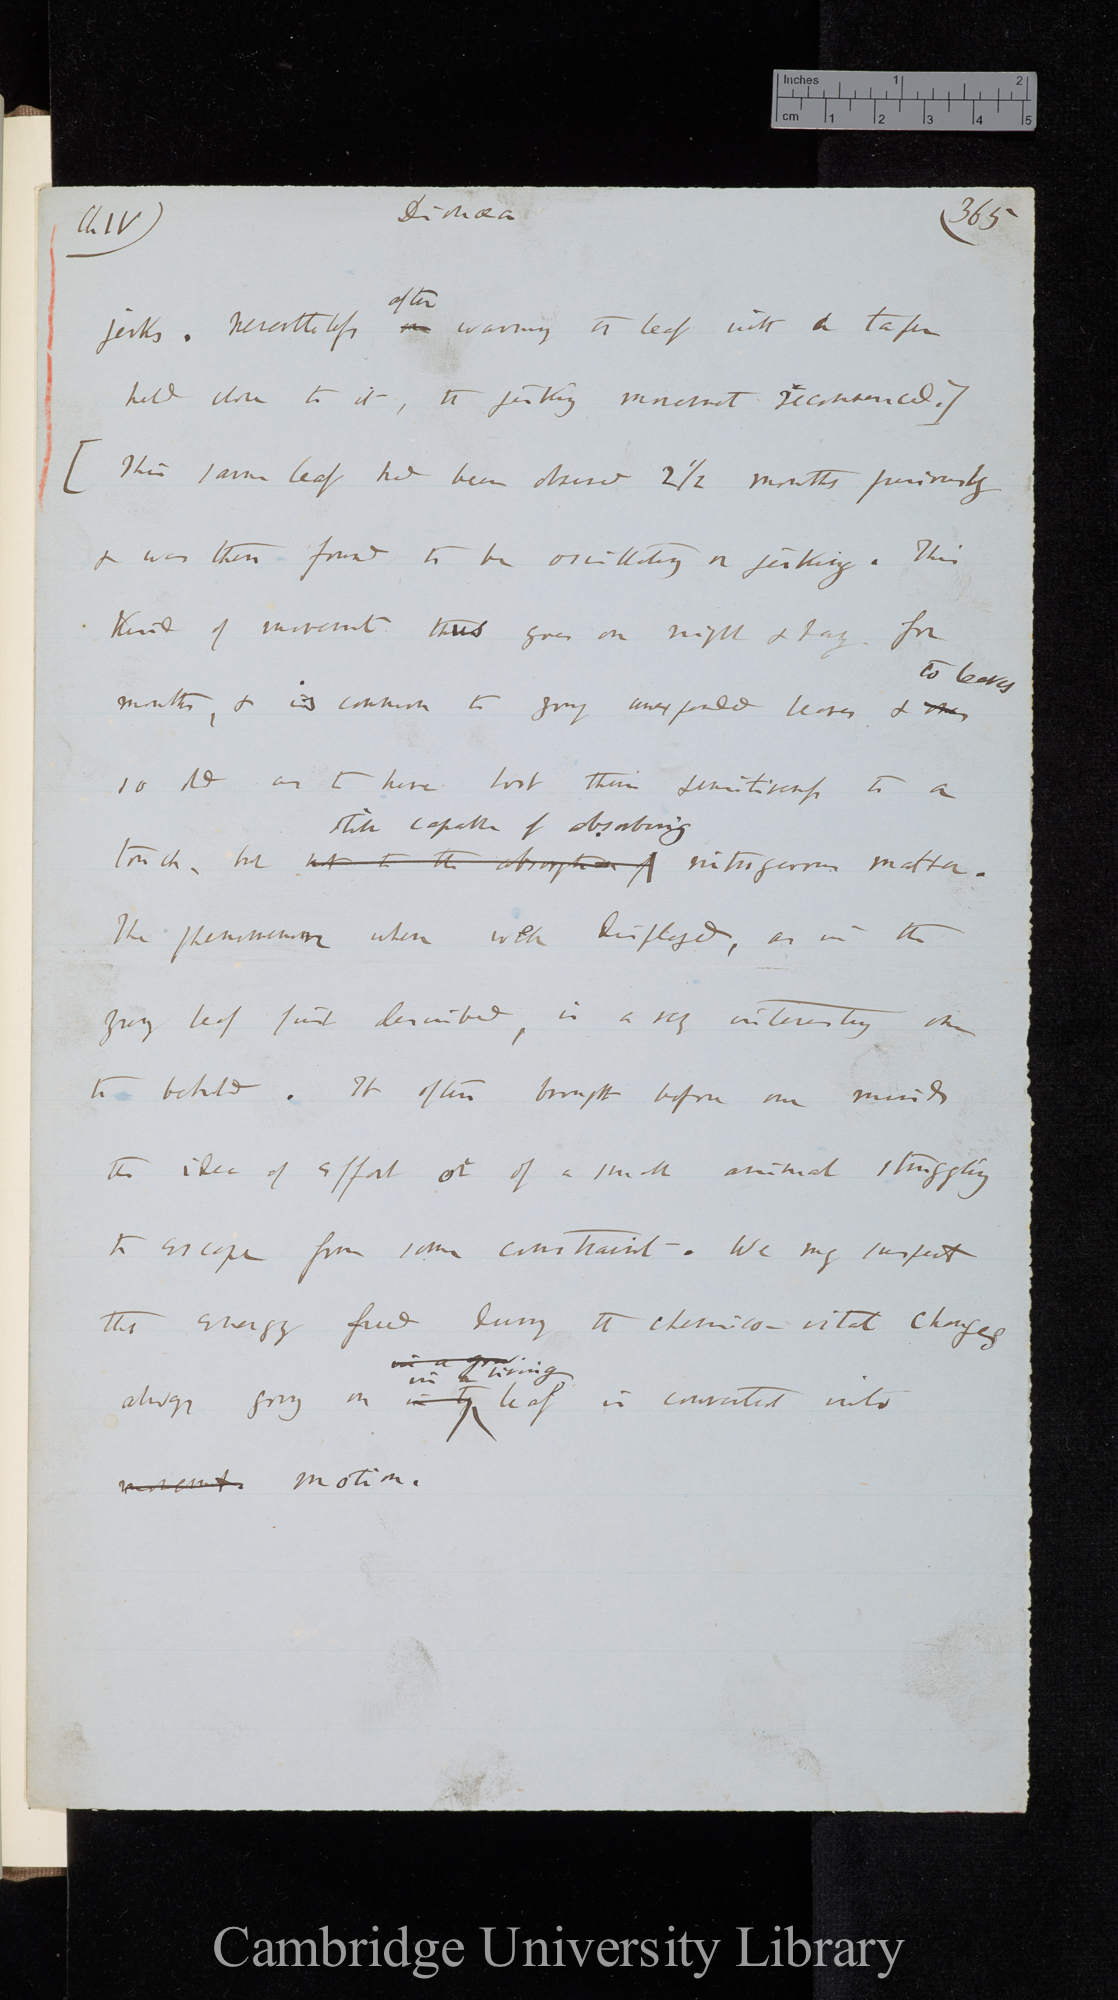 Inches 1 2
cm 1 2 3 4 5
Ch IV)
Dionæa
(365
after
jerks. Nevertheless on warming the leaf with a taper
held close to it, the jerking movement recommenced.]
[This same leaf had been observed 2 1/2 months previously
& was then found to be oscillating or jerking. This
kind of movement thus goes on night & day for
to leaves
months, & is common to young unexpanded leaves & ones
so old as to have lost their sensitiveness to a
still capable of absorbing
touch, but not to the absorption of nitrogenous matter.
The phenomenon when well displayed, as in the
young leaf just described, is a very interesting one
to behold. It often brought before our minds
the idea of effort or of a small animal struggling
to escape from some constraint. We may suspect
that energy freed during the chemico-vital changes
in a
in a living
always going on in the leaf is converted into
movement. motion.
Cambridge University Library